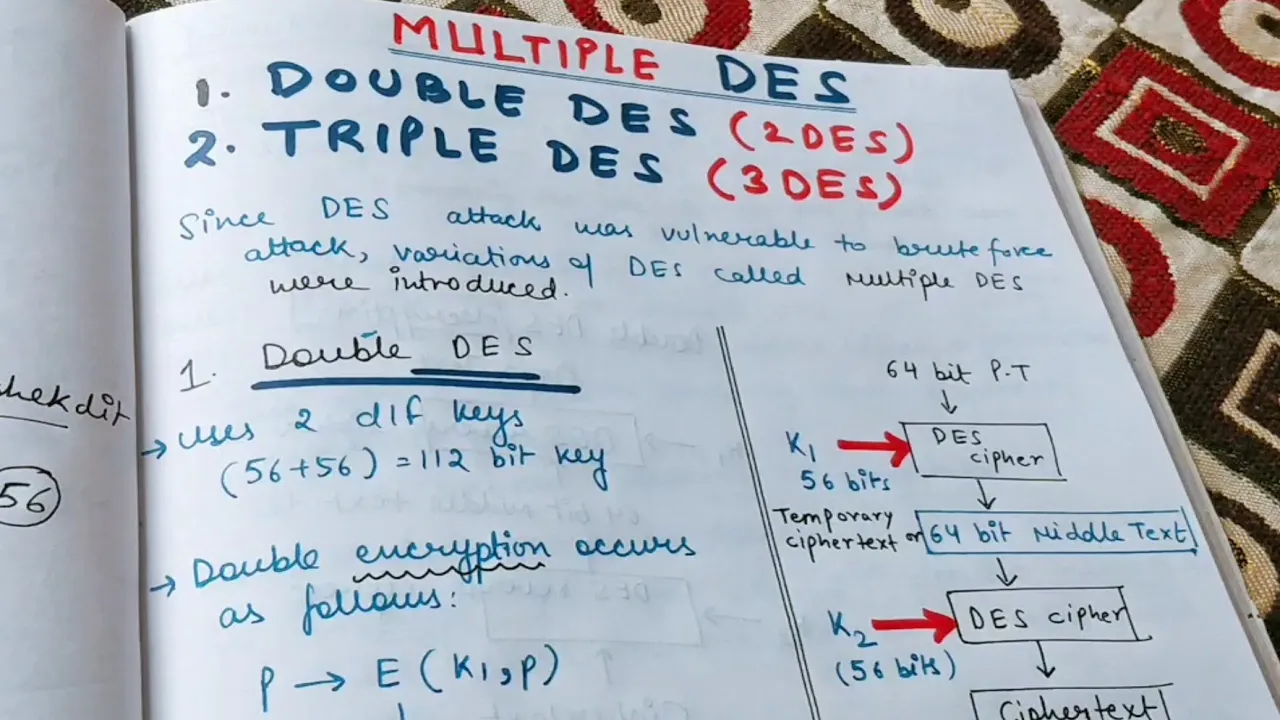 MULTIPLE DES
1. DOUBLE DES (2DES)
2. TRIPLE DES (3DES)
Since DES attack was vulnerable to brute force
attack, variations of DES called Multiple DES
were introduced.
1. Double DES
→ Uses 2 dif keys
(56+56) = 112 bit key
→ Double encryption occurs
as follows:
P → E (K1, P)
64 bit P.T
↓
K1 → DES cipher
56 bits
↓
Temporary
ciphertext or 64 bit Middle Text
↓
K2 → DES cipher
(56 bits)
↓
Ciphertext
56